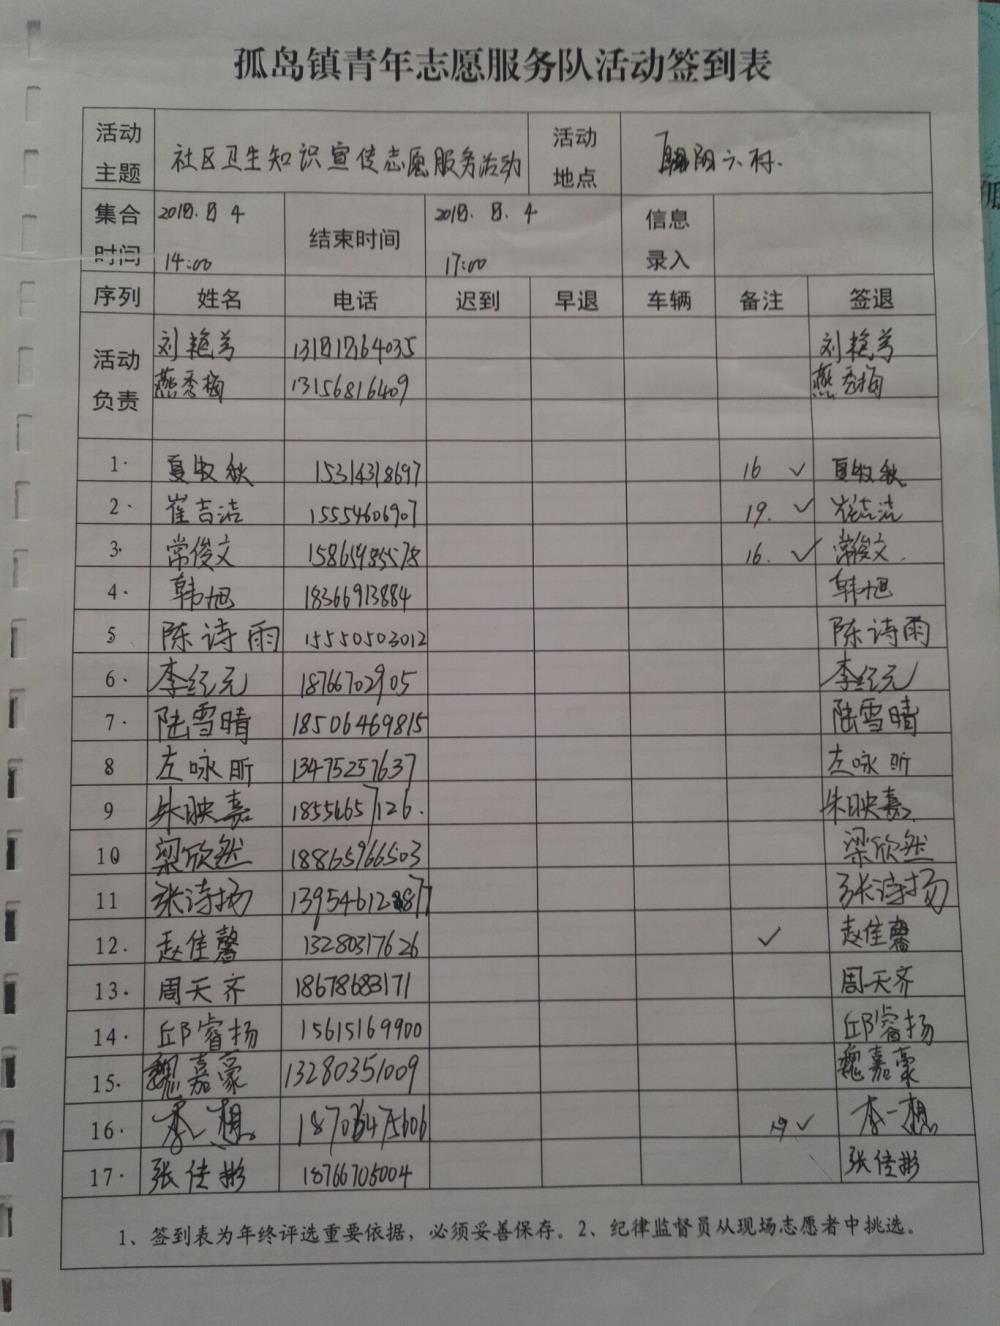 孤岛镇青年志愿服务队活动签到表
活动主题 社区卫生知识宣传志愿服务活动 活动地点 朝阳六村.
集合时间 2018.8.4 14:00 结束时间 2018.8.4 17:00 信息录入
序列 姓名 电话 迟到 早退 车辆 备注 签退
活动负责 刘艳芳 刘艳芳
燕秀梅 13156816409 燕秀梅
1. 夏牧秋 15314318697 16 ✓ 夏牧秋
2. 崔吉洁 15554606907 19. ✓ 崔吉洁
3. 常俊文 16. ✓ 常俊文.
4. 韩旭 18366913884 韩旭
5 陈诗雨 15550503012 陈诗雨
6. 李纪元 18766702905 李纪元
7. 陆雪晴 18506469815 陆雪晴
8 左咏昕 13475257637 左咏昕
9 朱映嘉 18554657126. 朱映嘉
10 梁欣然 18865966503 梁欣然
11 张诗扬 张诗扬
12. 赵佳馨 13280317626 ✓ 赵佳馨
13. 周天齐 18678683171 周天齐
14. 邱睿扬 15615169900 邱睿扬
15. 魏嘉豪 13280351009 魏嘉豪
16. 李一想 19 ✓ 李一想
17. 张佳彬 18766706004 张佳彬
1、签到表为年终评选重要依据，必须妥善保存。2、纪律监督员从现场志愿者中挑选。